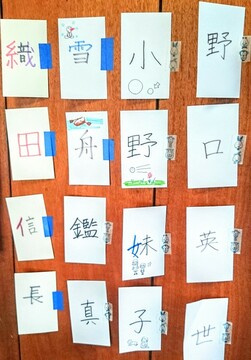 野口英世
小野妹子
雪舟鑑真
織田信長